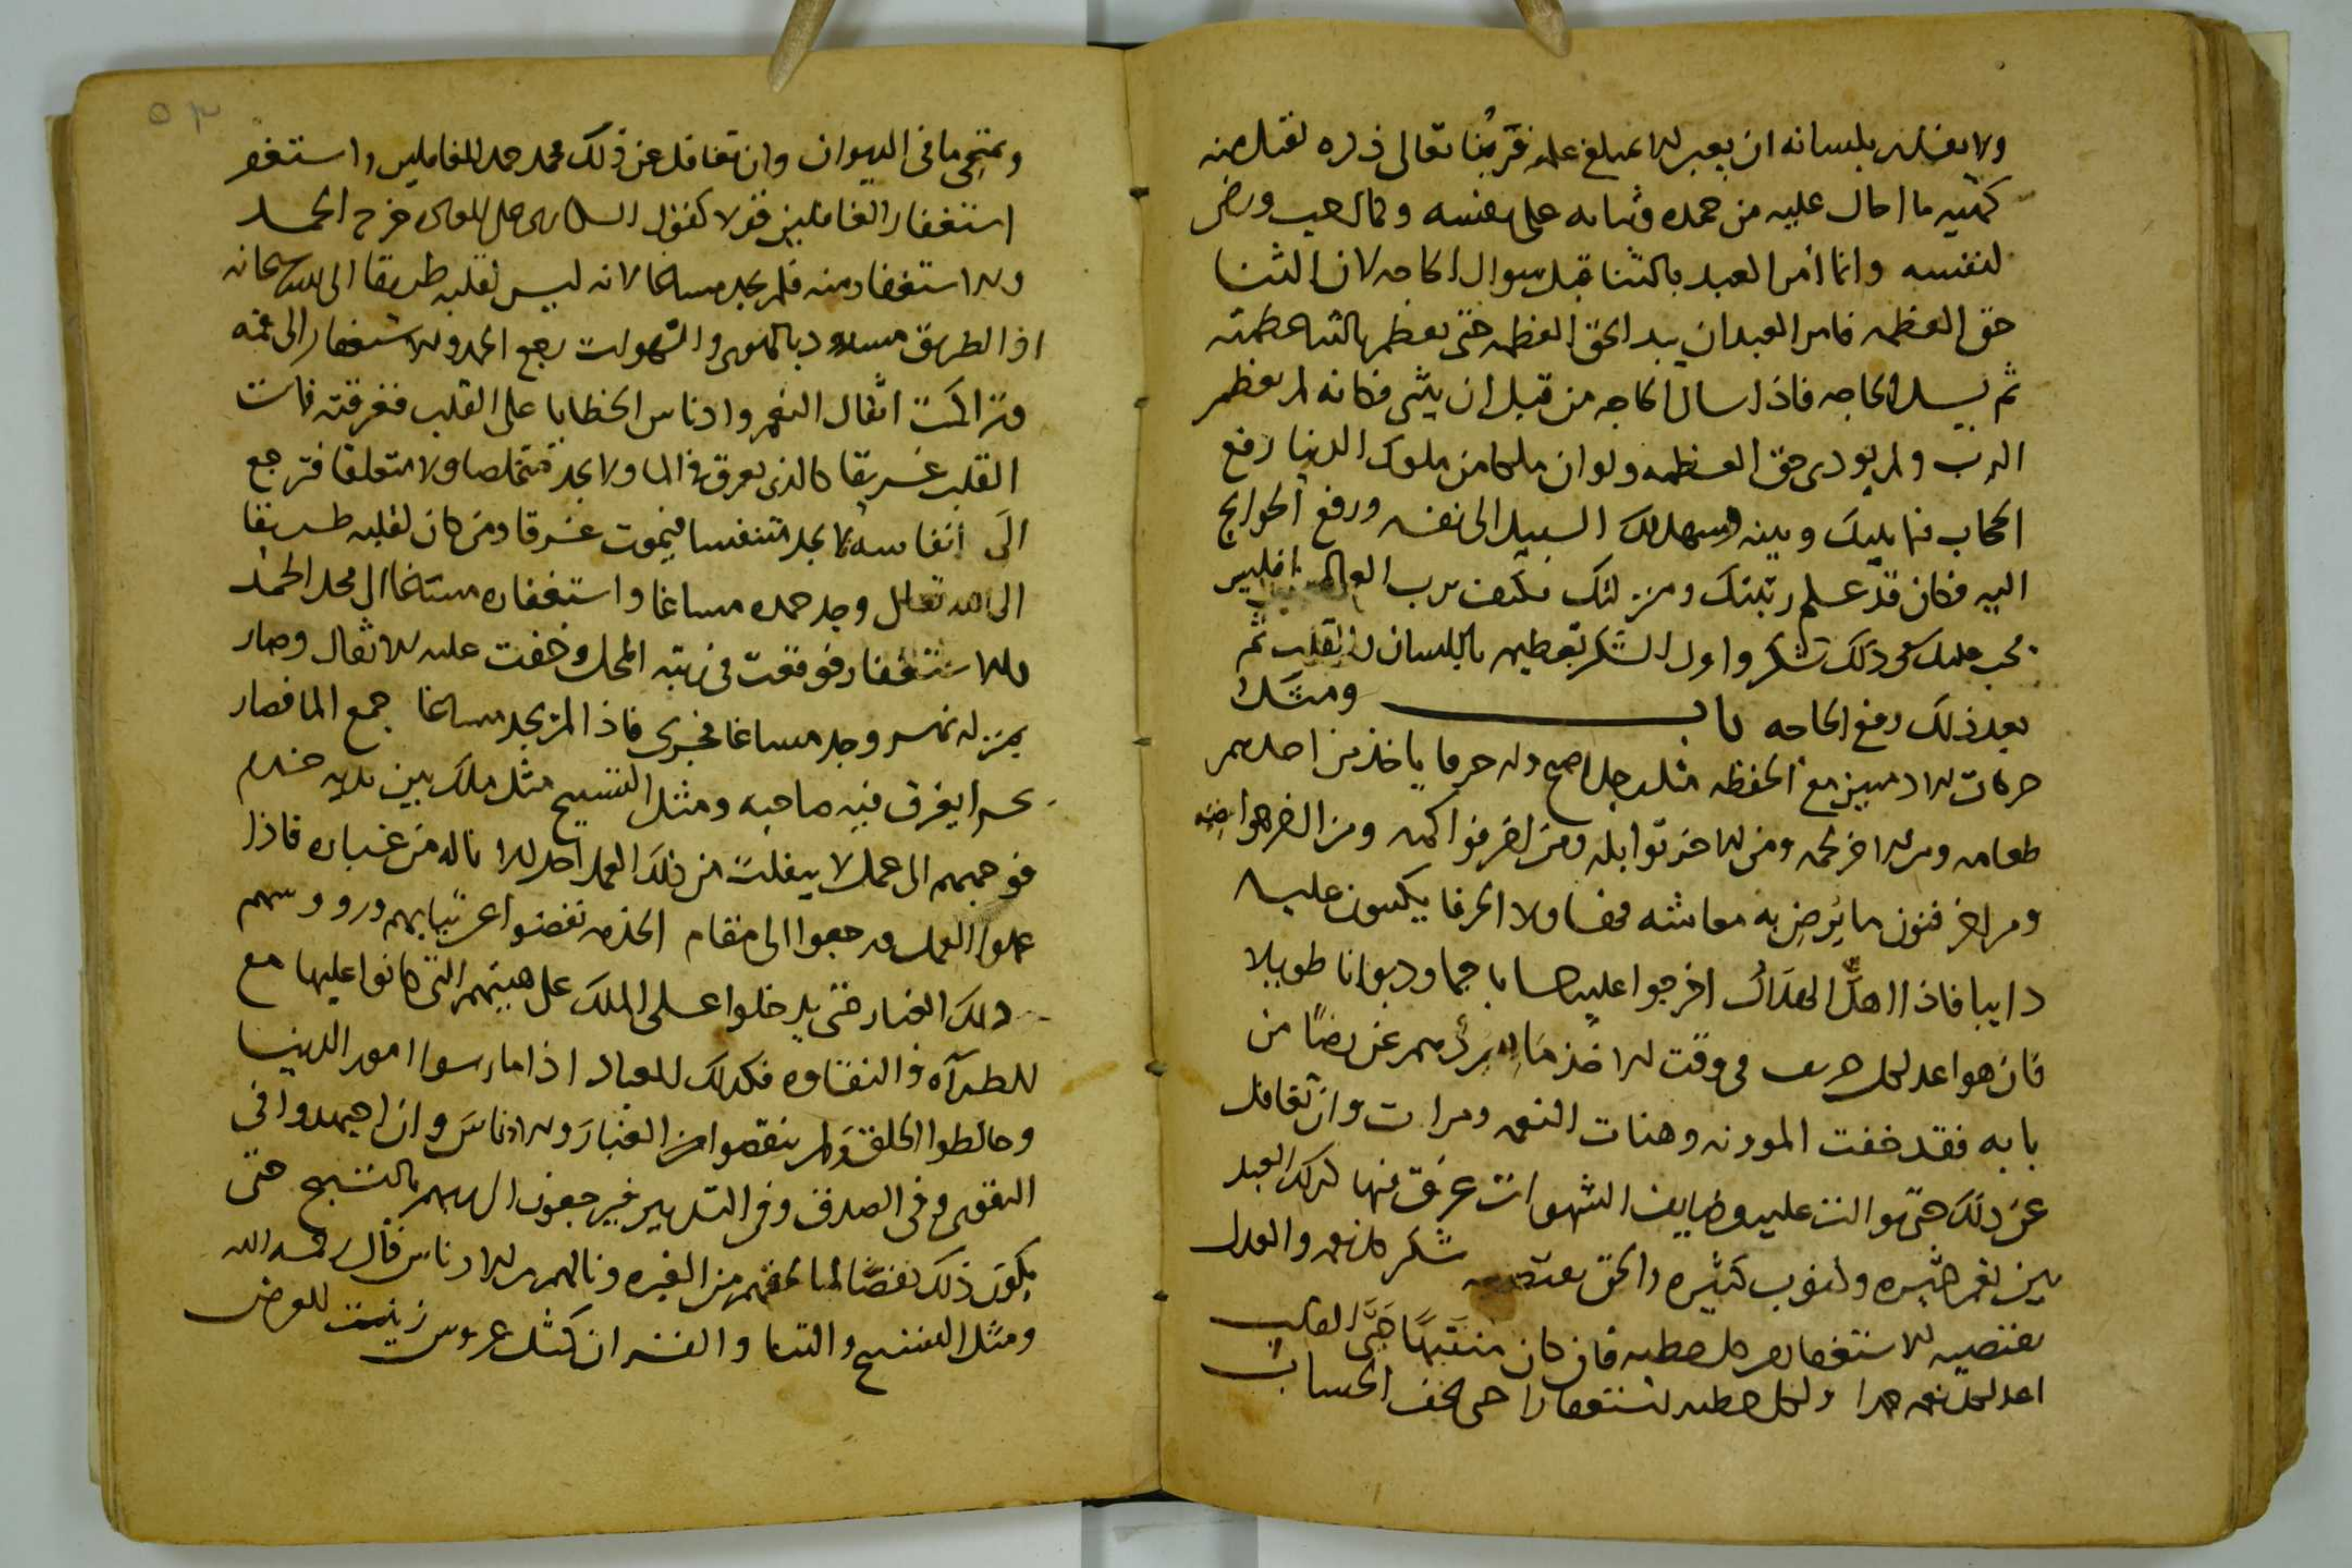 ولا يقدر بلسانه ان يعبر الا بمبلغ علمه فربنا تعالى ذكره تقبل منه
كهيه ما احال عليه من حمده وثنايه على نفسه وكما احب ورضى
لنفسه وانما أمر العبد بالثنا قبل سوال الحاجه لان الثنا
حق العظمه فامر العبد ان يبدا بحق العظمه حتى يعظم بالثنا عظمته
ثم يسل الحاجه فاذا سال الحاجه من قبل ان يثنى فكانه لم يعظم
الرب ولم يودى حق العظمه ولو ان ملكا من ملوك الدنيا رفع
الحجاب فيما بينك وبينه وسهل لك السبيل الى نفسه ورفع الحوايج
اليه فكان قد علم رتبتك ومنزلتك فكيف برب العالمين افليس
يجب عليك فى ذلك شكر واول الشكر تعظيمه باللسان والقلب ثم
بعد ذلك رفع الحاجه باب ومثل
حركات الادميين مع الحفظه مثل رجل اصبح وله حرفا ياخذ من احدهم
طعامه ومن الاخر لحمه ومن الاخر توابله ومن اخر فواكهه ومن اخر حوايجه
ومن اخر فنون ما يرضى به معاشه فهاولا الحرفا يكتبون عليه
دايبا فاذا اهل الهلال اخرجوا عليه حسابا جما وديوانا طويلا
فان هو اعد لكل حريف فى وقت الاخذ ما يردهم عن رضا من
بابه فقد خفت المونه وهنات النعمه ومرات وان تغافل
عن ذلك حتى توالت عليه وظايف الشهوات غرق فيها كذلك العبد
بين نعم كثيره وذنوب كثيره والحق يقتضيه شكر كل نعمه والعدل
يقتضيه الاستغفار من كل خطيه فان كان منتبها حى القلب
اعد لكل نعمه حمدا ولكل خطيه استغفارا حتى يخف الحساب
ويمتحى ما فى الديوان وان تغافل عن ذلك فحمد حمد الغافلين واستغفر
استغفار الغافلين قولا كقول السكارى خرج الحمد
والاستغفار منه فلم يجد مساغا لانه ليس لقلبه طريقا الى الله سبحانه
اذ الطريق مسدود بالهوى والشهوات رجع الحمد والاستغفار الى فمه
وتراكمت اثقال النعم وادناس الخطايا على القلب فغرقته فمات
القلب غريقا كالذى يغرق فى الما ولا يجد متخلصا ولا متعلقا فترجع
الى أنفاسه لا يجد متنفسا فيموت غرقا ومن كان لقلبه طريقا
الى الله تعالى وجد حمده مساغا واستغفاره مستاغا الى محل الحمد
والاستغفار فوقعت فى رتبة المحل وخفت عليه الاثقال وصار
بمنزله نهر وجد مساغا فجرى فاذا لم يجد مساغا جمع الما فصار
بحرا يغرق فيه صاحبه ومثل التسبيح مثل ملك بين يديه خدم
فوجههم الى عمل لا ينفلت من ذلك العمل احد الا ناله من غباره فاذا
عملوا العمل ورجعوا الى مقام الخدمه نفضوا عن ثيابهم ورووسهم
ذلك الغبار حتى يدخلوا على الملك على هيتهم التى كانوا عليها مع
الطرآه والنقاوه فكذلك العباد اذا مارسوا امور الدنيا
وخالطوا الخلق ولم ينقصوا من الغبار والادناس وان اجتهدوا فى
التقوى وفى الصدق وفى التدبير فيرجعون الى ربهم بالتسبيح حتى
يكون ذلك نفضا لما لحقهم من الغبره ونالهم من الادناس قال رحمه الله
ومثل التسبيح والثنا والقران كمثل عروس زينت للعرض